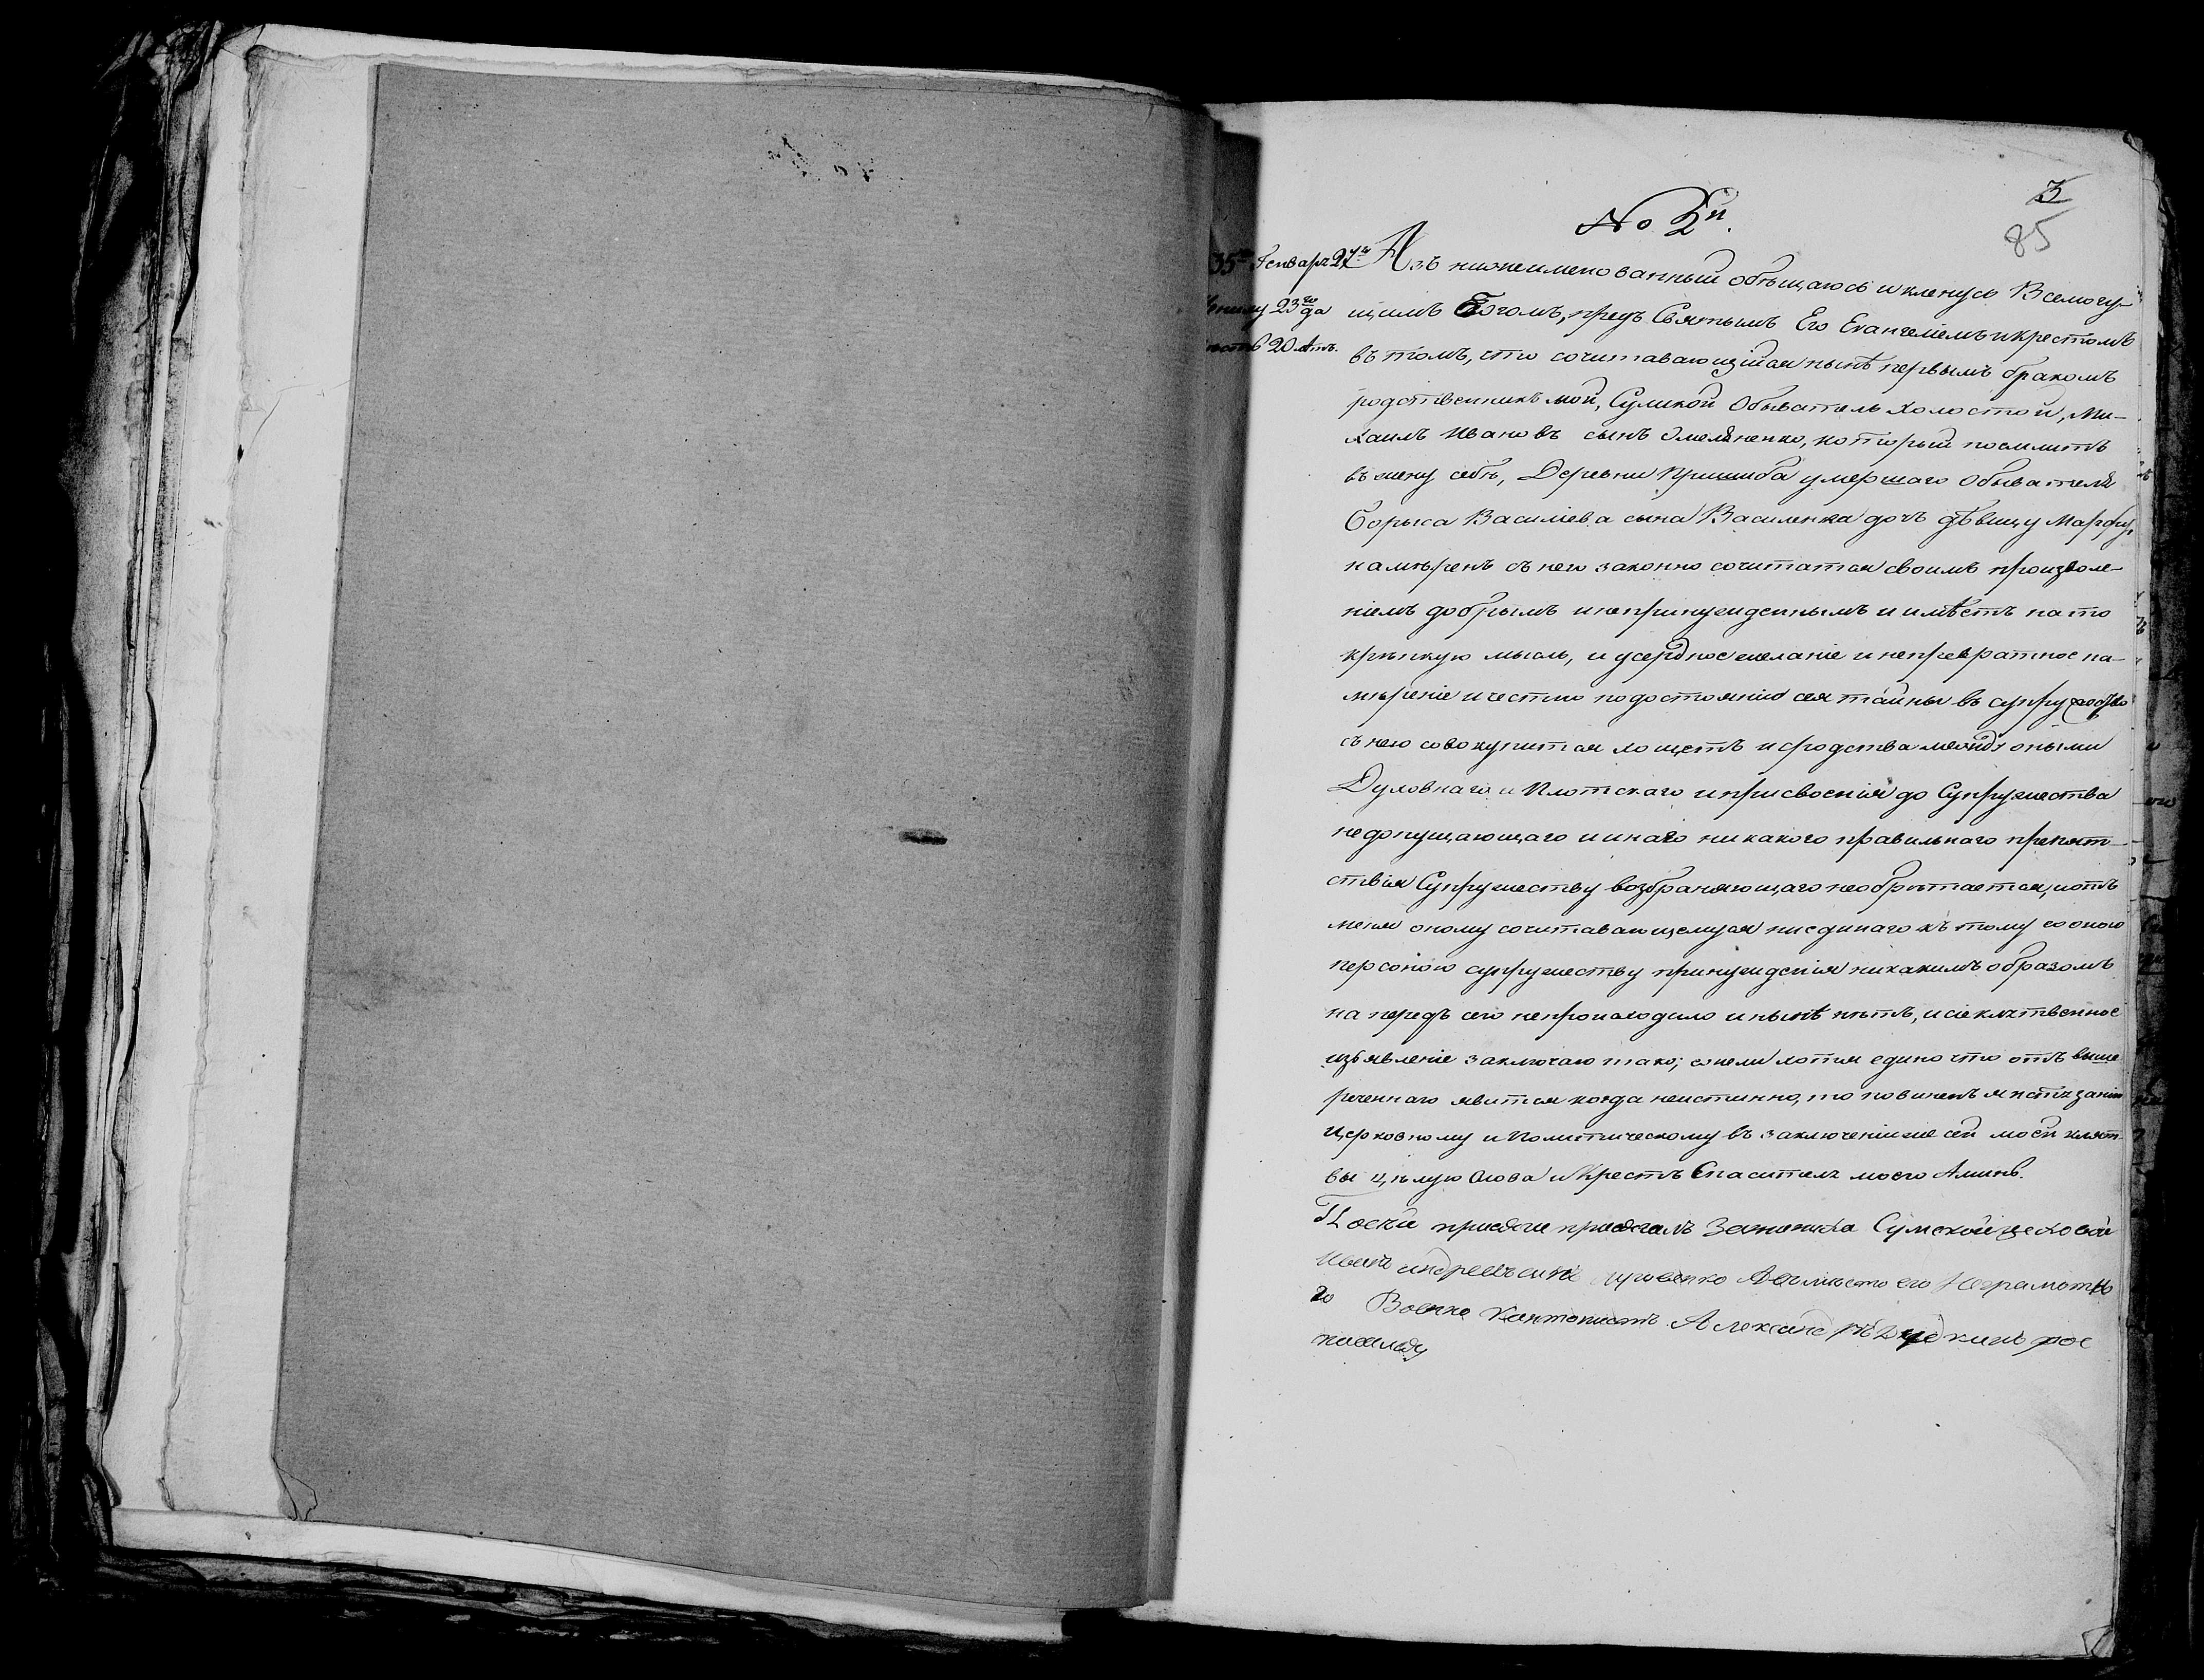 3
85
№ 2й.
35го Генваря 27го
23 го да
20 лѣтъ.
Азъ нижеименованный обѣщаюсь и кленусь Всемогу-
щимъ Богомъ, предъ Святымъ Его Евангелiемъ и крестомъ
въ томъ, что сочитавающiйся нынѣ первымъ бракомъ
родственникъ мой, Сумской Обыватель холостой, Ми-
хаилъ Ивановъ сынъ Омеляненко, который поемлитъ
въ жену себѣ, Деревни Пришиба умершаго Обывателя
Борыса Василiева сына Василенка дочь дѣвицу Марфу,
намѣренъ съ нею законно сочитатися своимъ произволе-
нiемъ добрымъ и непринужденнымъ и имѣетъ на то
крѣпкую мысль, и усердное желанiе и непревратное на-
мѣренiе и честно по достоянiю сея тайны въ супружество
съ нею совокупится хощетъ и сродства между оными
Духовнаго и Плотскаго и присвоенiя до Супружества
недопущающаго и инаго никакого правильнаго препят-
ствiя Супружеству возбраняющаго необрѣтается, и отъ
меня оному сочитавающемуся ниединаго къ тому со оною
персоною супружеству принужденiя никакимъ образомъ
на передъ сего непроисходило и нынѣ нѣтъ, и сiе клятвенное
изъявленiе заключаю тако; ежели хотя едино что отъ выше
реченнаго явится когда неистинно, то повиненъ я истязанiю
Церковному и Политическому въ заключенiи же сей моей клят-
вы цѣлую Слова и Крестъ Спасителя моего Аминь.
По сей присяги присягалъ Сумской цеховой
Иванъ андреевъ сынъ а вмѣсто его неграмотно
го Военно Кантонистъ Александръ рос